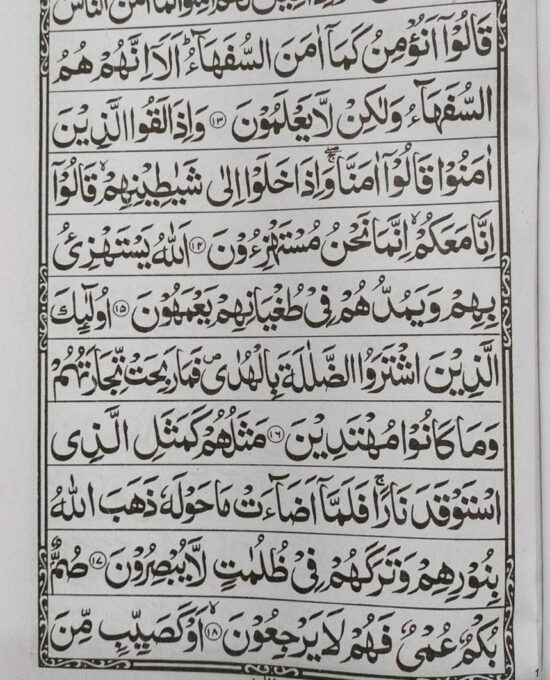 لَهُمْ اٰمِنُوْا كَمَاۤ اٰمَنَ النَّاسُ
قَالُوْۤا اَنُؤْمِنُ كَمَاۤ اٰمَنَ السُّفَهَآءُ ؕ اَلَاۤ اِنَّهُمْ هُمُ
السُّفَهَآءُ وَلٰكِنْ لَّا يَعْلَمُوْنَ ﴿۱۳﴾ وَاِذَا لَقُوا الَّذِيْنَ
اٰمَنُوْا قَالُوْۤا اٰمَنَّا ۖۚ وَاِذَا خَلَوْا اِلٰى شَيٰطِيْنِهِمْ ۙ قَالُوْۤا
اِنَّا مَعَكُمْ ۙ اِنَّمَا نَحْنُ مُسْتَهْزِءُوْنَ ﴿۱۴﴾ اَللّٰهُ يَسْتَهْزِئُ
بِهِمْ وَيَمُدُّهُمْ فِىْ طُغْيَانِهِمْ يَعْمَهُوْنَ ﴿۱۵﴾ اُولٰٓئِكَ
الَّذِيْنَ اشْتَرَوُا الضَّلٰلَةَ بِالْهُدٰى ۪ فَمَا رَبِحَتْ تِّجَارَتُهُمْ
وَمَا كَانُوْا مُهْتَدِيْنَ ﴿۱۶﴾ مَثَلُهُمْ كَمَثَلِ الَّذِى
اسْتَوْقَدَ نَارًا ۚ فَلَمَّاۤ اَضَآءَتْ مَا حَوْلَهٗ ذَهَبَ اللّٰهُ
بِنُوْرِهِمْ وَتَرَكَهُمْ فِىْ ظُلُمٰتٍ لَّا يُبْصِرُوْنَ ﴿۱۷﴾ صُمٌّۢ
بُكْمٌ عُمْىٌ فَهُمْ لَا يَرْجِعُوْنَ ۙ ﴿۱۸﴾ اَوْ كَصَيِّبٍ مِّنَ